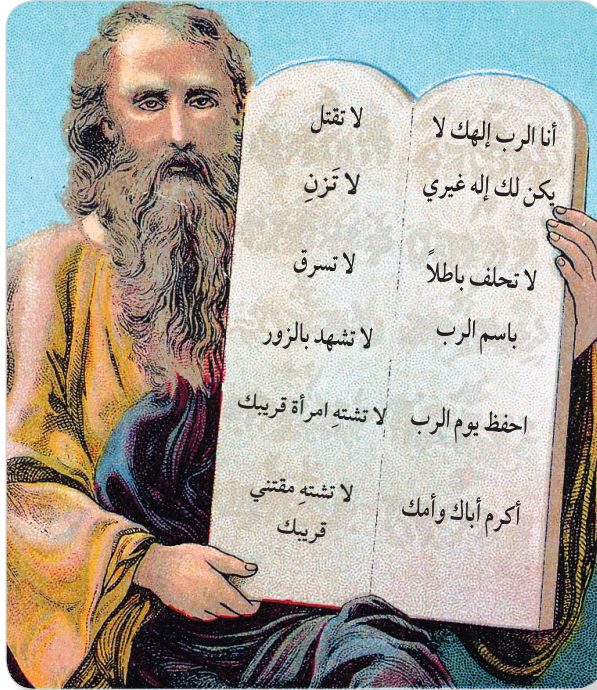 أنا الرب إلهك لا
يكن لك إله غيري
لا تحلف باطلاً
باسم الرب
احفظ يوم الرب
أكرم أباك وأمك
لا تقتل
لا تَزنِ
لا تسرق
لا تشهد بالزور
لا تشتهِ امرأة قريبك
لا تشتهِ مقتني
قريبك